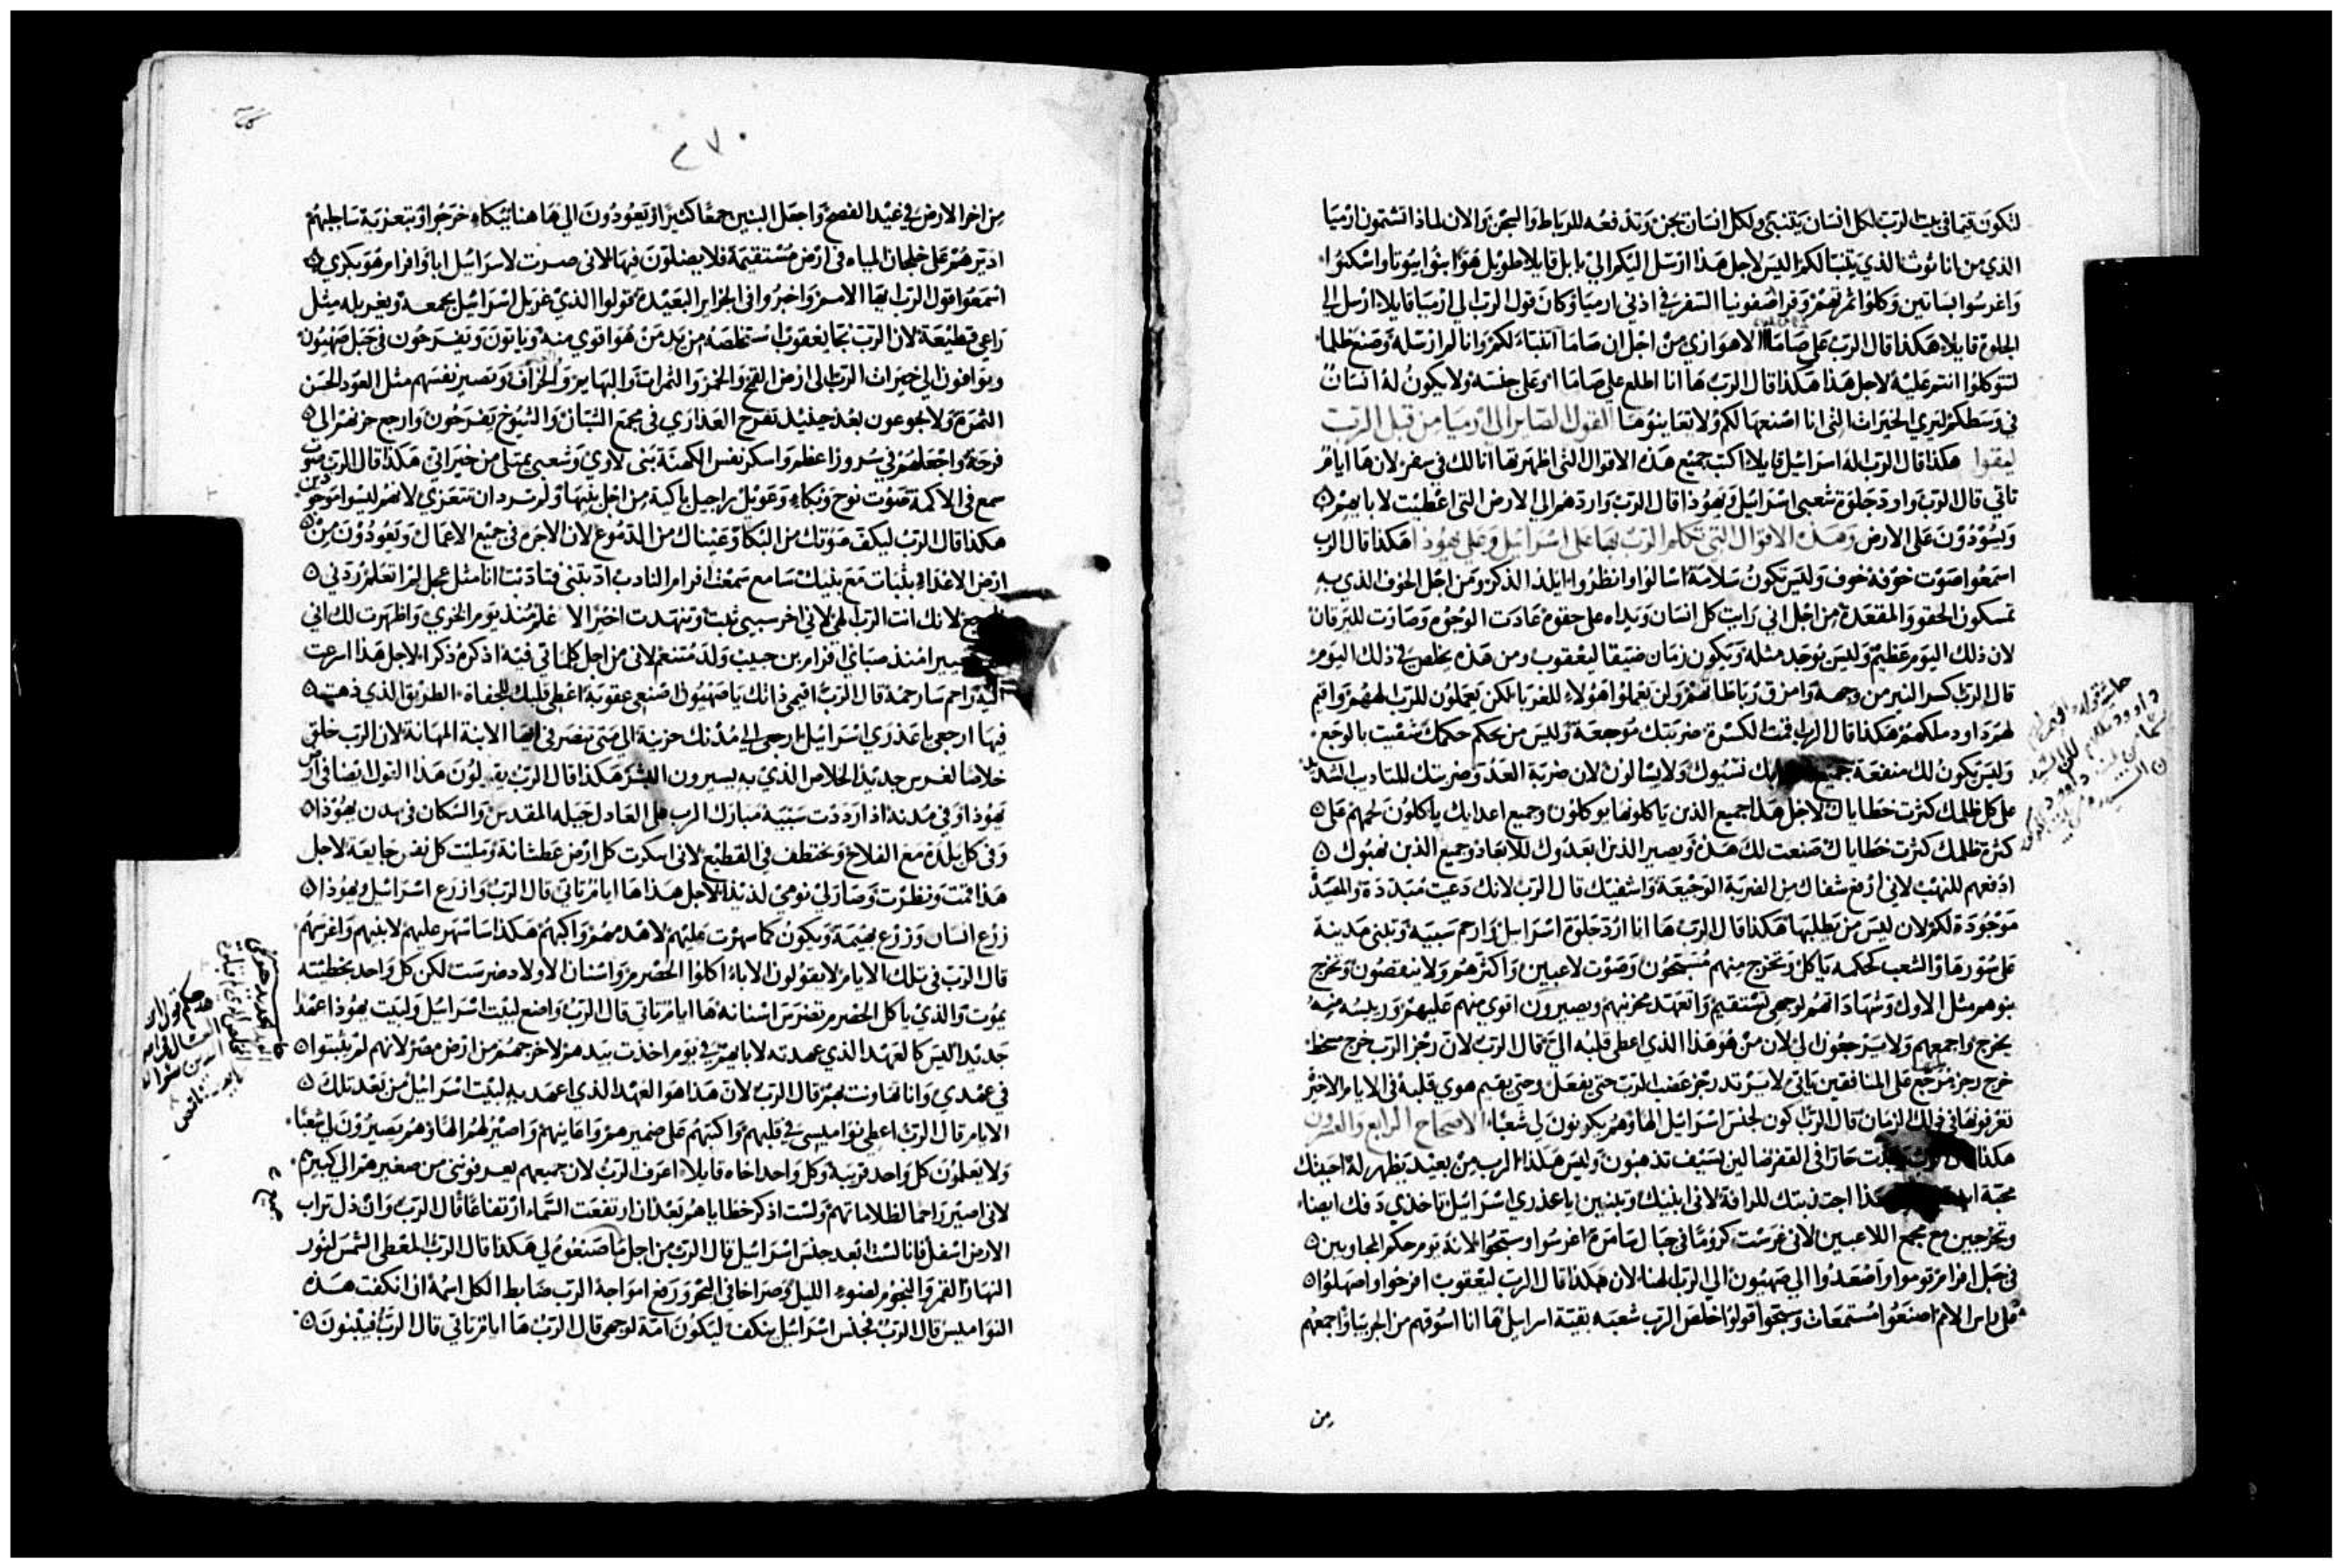 لتكون قيما في بيت الرب لكل انسان يتنبي ولكل انسان يجن وتدفعه للرباط والسجن والان لماذا تشتمون ارميا
الذي من اناثوث الذي يتنبا لكم اليس لاجل هذا ارسل اليكم الي بابل قايلا طويل هو ابنوا بيوتا واسكنوا
واغرسوا بساتين وكلوا ثمرتهم وقرا صفونيا السفر في اذني ارميا وكان قول الرب الي ارميا قايلا ارسل الي
الجلوة قايلا هكذا قال الرب علي صاماا الاهوازي من اجل ان صاما اتنباء لكم وانا لم ارسله وصنع ظلما
لتتوكلوا انتم عليه لاجل هذا هكذا قال الرب ها انا اطلع علي صاما وعلي جنسه ولا يكون له انسان
في وسطكم ليري الخيرات التي انا اصنعها لكم ولا يعاينوها القول الصاير الي ارميا من قبل الرب
ليقوا هكذا قال الرب اله اسرائيل قايلا اكتب جميع هذه الاقوال التي اظهرتها انا لك في سفر لان ها ايام
تاتي قال الرب وارد جلوة شعبي اسرائيل ويهوذا قال الرب واردهم الي الارض التي اعطيت لابايهم
ويسودون علي الارض وهذه الاقوال التي تكلم الرب بها علي اسرائيل وعلي يهوذا هكذا قال الرب
اسمعوا صوت خوفه خوف وليس تكون سلامة اسالوا وانظروا ايلد الذكر ومن اجل الخوف الذي به
تمسكون الحقو والمقعدة من اجل اني رايت كل انسان ويداه علي حقوه عادت الوجوه وصارت لليرقان
لان ذلك اليوم عظيم وليس يوجد مثله ويكون زمان ضيقا ليعقوب ومن هذه يخلص في ذلك اليوم
قال الرب اكسر النير من وامزق رباطاتهم ولن يعملوا هولاء للغربا لكن يعملون للرب الههم واقيم
لهم داود ملكهم هكذا قال الرب اقمت الكسرة ضربتك موجعة وليس من يحكم حكمك شقيت بالوجع
وليس يكون لك منفعة جميع نسيوك ولا يسالون لان ضربة العدو ضربتك للتاديب
علي كل ظلمك كثرت خطاياك لاجل هذا جميع الذين ياكلونها يوكلون وجميع اعدايك ياكلون لحمهم علي
كثرة ظلمك كثرت خطاياك صنعت لك هذه ويصير الذين ابعدوك للابعاد وجميع الذين نهبوك
ادفعهم للنهب لاني ارفع شفاك من الضربة الوجيعة واشفيك قال الرب لانك دعيت مبددة والمصيدة
موجودة لكم لان ليس من يطلبها هكذا قال الرب ها انا ارد جلوة اسرائيل وارحم سبيه وتبني مدينة
علي سورها والشعب كحكمه ياكل ويخرج منهم مسبحون وصوت لاعبين واكثرهم ولا ينقصون وتخرج
بنوهم مثل الاول وشهاداتهم لوجهي تستقيم واتعهد محزنيهم ويصيرون اقوي منهم عليهم ورييسه منه
يخرج واجمعهم ولا يرجعون الي لان من هو هذا الذي اعطي قلبه الي قال الرب لان رجز الرب خرج سخط
خرج رجز مرجع علي المنافقين ياتي لا يرتد رجز غضب الرب حتي يفعل وحتي يقيم هوي قلبه في الايام الاخير
تعرفونها في ذلك الزمان قال الرب اكون لجنس اسرائيل الها وهم يكونون لي شعبا الاصحاح الرابع والعشرون
هكذا حارا في القفر ضالين لسيف تذهبون وليس هكذا الرب من بعيد يظهر له احببتك
محبة اجتذبتك للرافة لاني ابنيك وتبنين يا عذري اسرائيل تاخذي دفك ايضاء
وتخرجين مع مجمع اللاعبين لاني غرست كروما في جبال سامرة اغرسوا وسبحوا لانه يوم حكم المجاوبين
في جبل افرام قوموا واصعدوا الي صهيون الي الرب الهنا لان هكذا قال الرب ليعقوب افرحوا واصهلوا
علي راس الامم اصنعوا مستمعات وسبحوا قولوا خلص الرب شعبه بقية اسرايل ها انا اسوقهم من الجربيا واجمعهم
من
٢٧٠
من اخر الارض في عيد الفصح واجعل البنين جمعا كثيرا ويعودون الي ها هنا ببكاء خرجوا وبتعزية ساجلبهم
ادبرهم علي خلجان المياه في ارض مستقيمة فلا يضلون فيها لاني صرت لاسرائيل ابا وافرام هو بكري
اسمعوا قول الرب ايها الامم واخبروا في الجزاير البعيدة قولوا الذي غربل اسرائيل يجمعه ويغربله مثل
راعي قطيعة لان الرب نجا يعقوب استخلصه من يد من هو اقوي منه وياتون ويفرحون في جبل صهيون
ويوافون الي خيرات الرب الي ارض القمح والخمر والثمرات والبهايم والخراف وتصير نفسهم مثل العود الحسن
الثمرة ولا يجوعون بعد حينيذ تفرح العذاري في مجمع الشبان والشيوخ يفرحون وارجع حزنهم الي
فرحة واجعلهم في سرور اعظم واسكر نفس الكهنة بني لاوي وشعبي يمتلي من خيراتي هكذا قال الرب صوت
سمع في الاكمة صوت نوح وبكاء وعويل راحيل باكية من اجل بنيها ولم ترد ان تتعزي لانهم ليسوا موجودين
هكذا قال الرب ليكف صوتك من البكا وعيناك من الدموع لان الاجرة في جميع الاعمال ويعودون من
ارض الاعداء بثبات مع بنيك سامع سمعت افرام النادب ادبتني فتادبت انا مثل عجل لم اتعلم ردني
لانك انت الرب الهي لاني اخر سبيي ثبت وتنهدت اخيرا لا علم منذ يوم الخزي واظهرت لك اني
منذ صباي افرام بن حبيب ولد متنعم لاني من اجل كلماتي فيه اذكره ذكرا لاجل هذا اسرعت
اليه راحم سارحمه قال الرب اقيمي ذاتك يا صهيون اصنعي عقوبة اعطي قلبك للجفاة الطريق الذي ذهبت
فيها ارجعي يا عذري اسرائيل ارجعي الي مدنك حزينة الي متي تنصرفي ايها الابنة المهانة لان الرب خلق
خلاصا لغرس جديد الخلاص الذي به يسيرون البشر هكذا قال الرب يقولون هذا القول ايضا في ارض
يهوذا وفي مدنه اذا رددت سبيه مبارك الرب علي العادل جبله المقدس والسكان في مدن يهوذا
وفي كل بلدة مع الفلاح ويختطف في القطيع لاني اسكرت كل ارض عطشانة ومليت كل نفس جايعة لاجل
هذا قمت ونظرت وصار لي نومي لذيذا لاجل هذا ها ايام تاتي قال الرب وازرع اسرائيل ويهوذا
زرع انسان وزرع بهيمة ويكون كما سهرت عليهم لاهدمهم واكبهم هكذا ساسهر عليهم لابنيهم واغرسهم
قال الرب في تلك الايام لا يقولون الاباء اكلوا الحصرم واسنان الاولاد ضرست لكن كل واحد بخطيته
يموت والذي ياكل الحصرم تضرس اسنانه ها ايام تاتي قال الرب واضع لبيت اسرائيل ولبيت يهوذا عهدا
جديدا ليس كالعهد الذي عهدته لابايهم في يوم اخذت بيدهم لاخرجهم من ارض مصر لانهم لم يثبتوا
في عهدي وانا تهاونت بهم قال الرب لان هذا هو العهد الذي اعهد به لبيت اسرائيل من بعد تلك
الايام قال الرب اعطي نواميسي في قلبهم واكتبهم علي ضميرهم واعاينهم واصير لهم الها وهم يصيرون لي شعبا
ولا يعلمون كل واحد قريبه وكل واحد اخاه قايلا اعرف الرب لان جميعهم يعرفونني من صغيرهم الي كبيرهم
لاني اصير راحما لظلاماتهم ولست اذكر خطاياهم بعد ان ارتفعت السماء ارتفاعا قال الرب وان ذل تراب
الارض اسفل فانا لست ابعد جنس اسرائيل قال الرب من اجل ما صنعوه لي هكذا قال الرب المعطي الشمس لنور
النهار القمر والنجوم لضوء الليل وصراخا في البحر ورفع امواجه الرب ضابط الكل اسمه ان انكفت هذه
النواميس قال الرب فجنس اسرائيل ينكف ليكون امة لوجهي قال الرب ها ايام تاتي قال الرب فيبنون